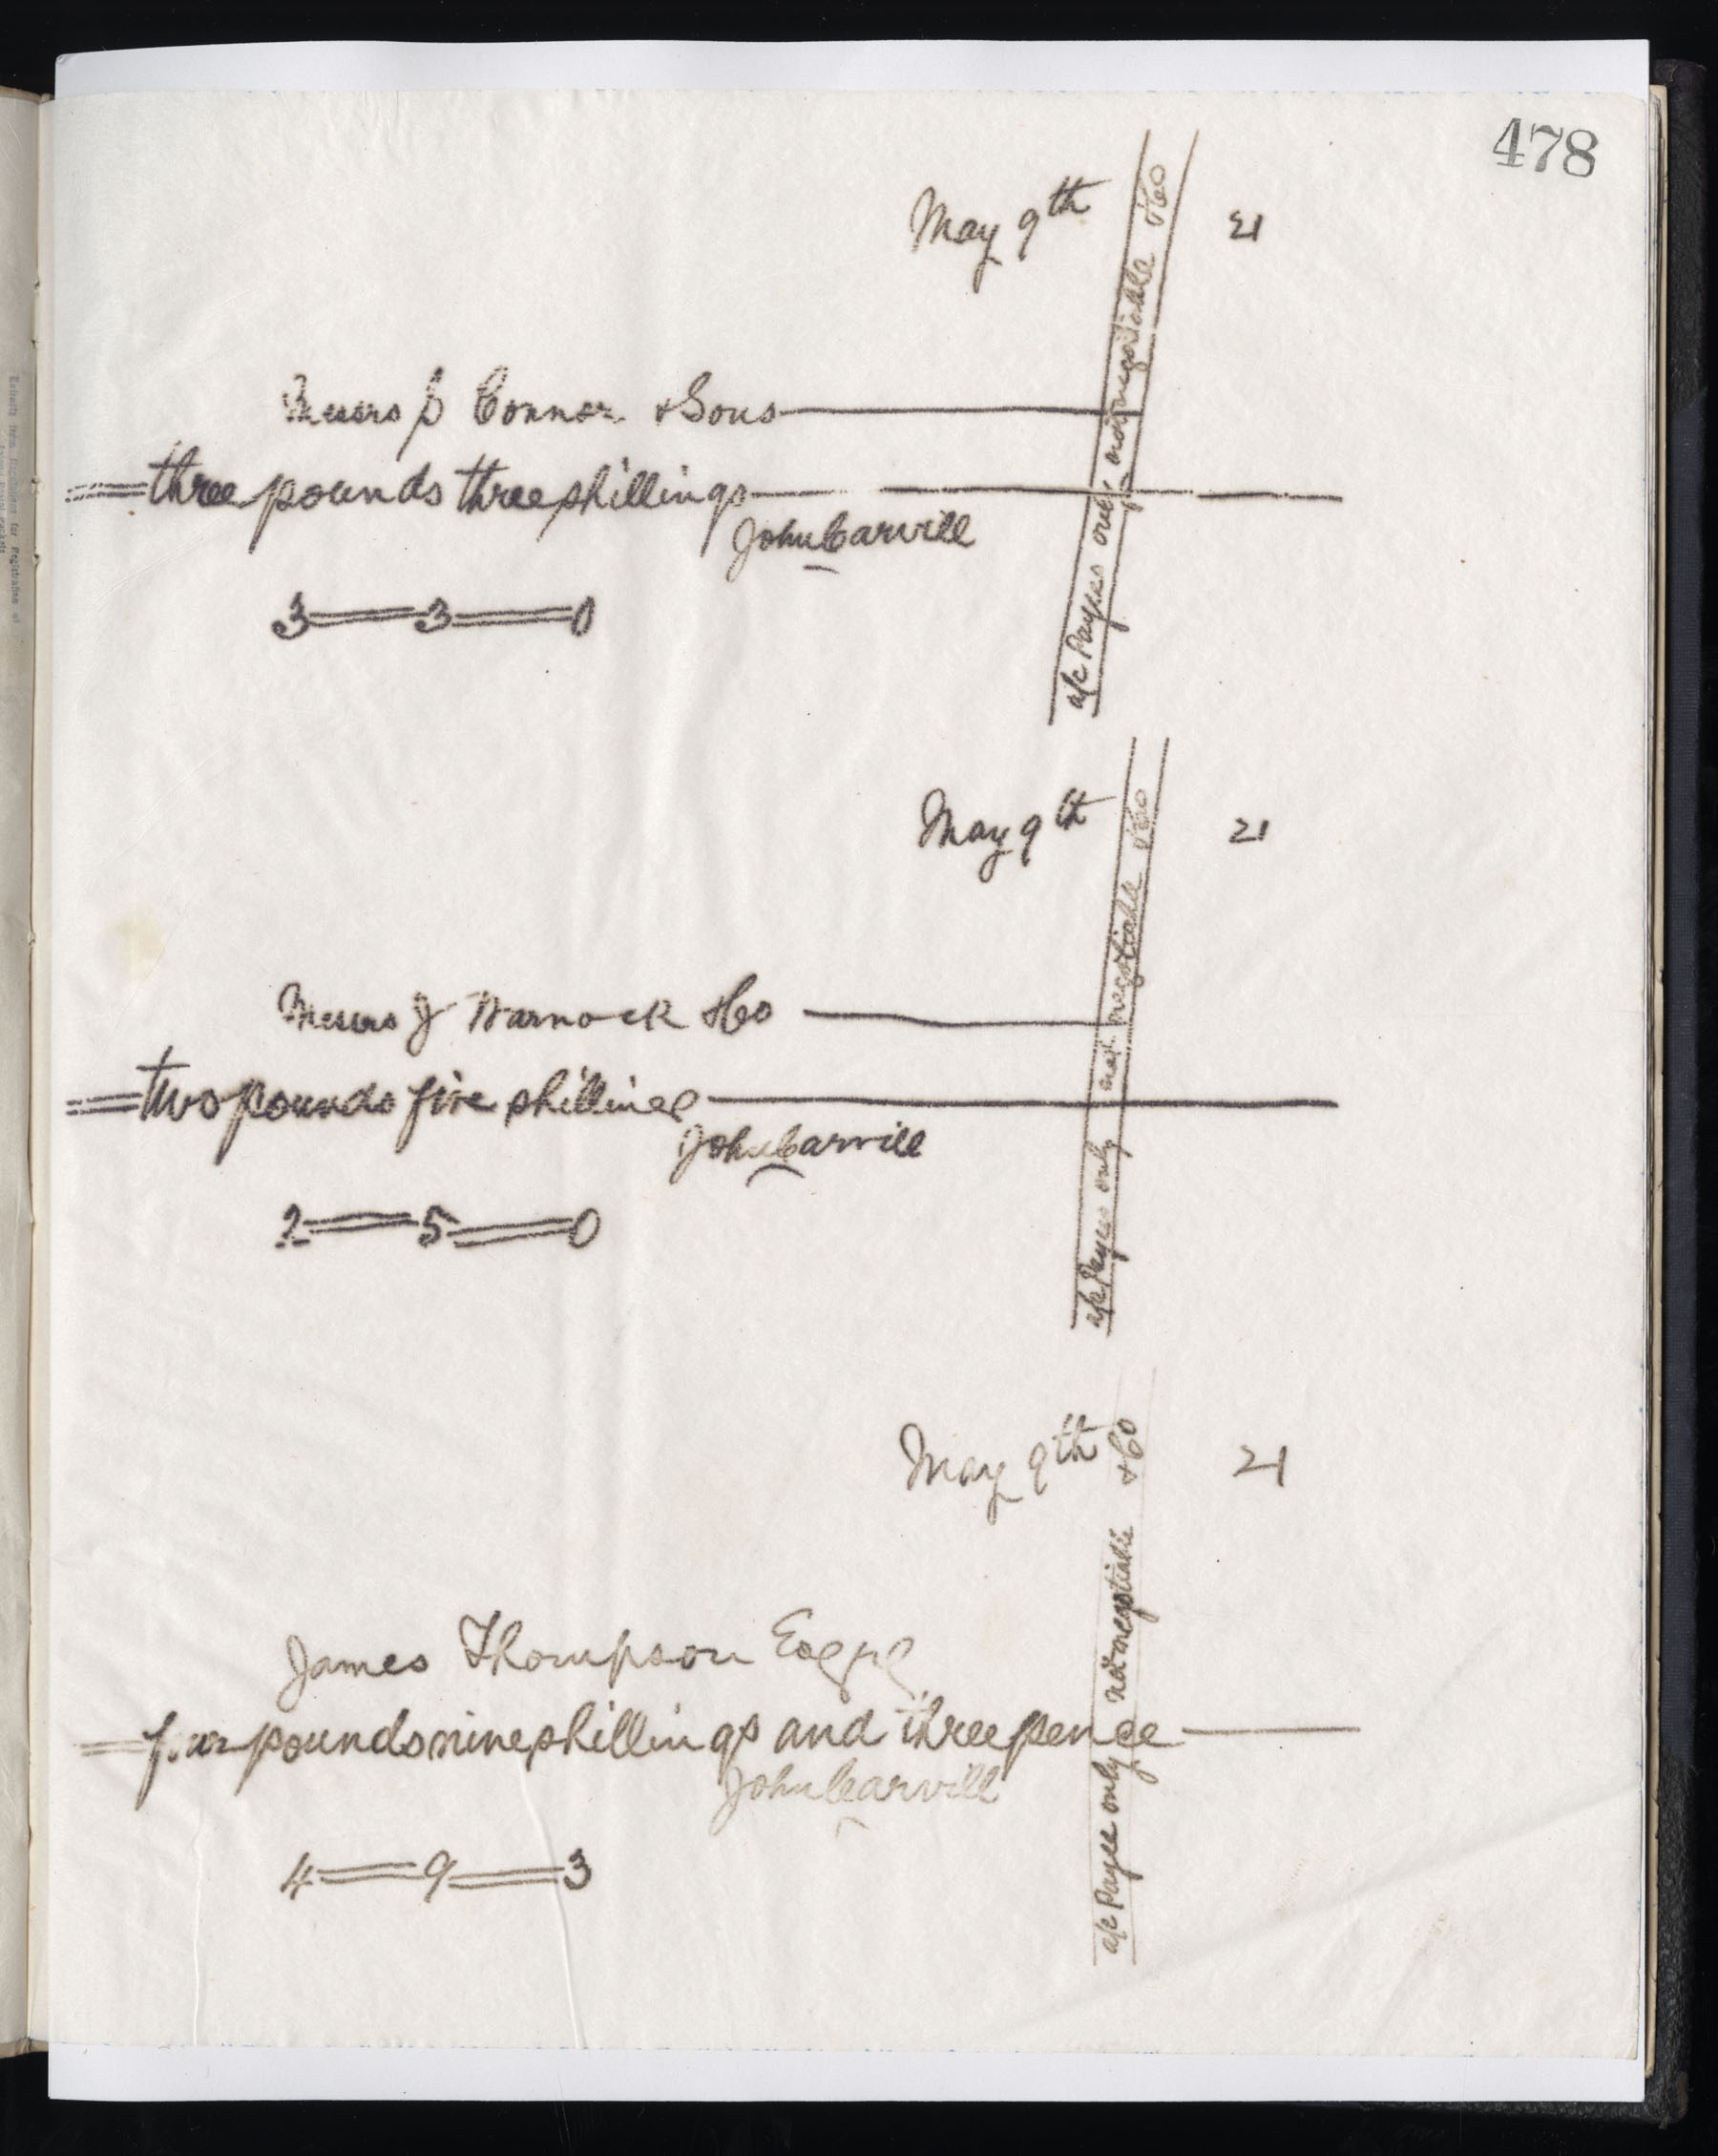 478
May 9th 21
Messrs J Connor & Sons
three pounds three shillings
John Carvill
3 3 0
a/c Payees only not negotiable & Co
May 9th 21
Messrs J Warnock & Co
two pounds five shillings
John Carvill
2 5 0
a/c Payees only not negotiable & Co
May 9th 21
James Thompson Esqre
four pounds nine shillings and three pence
John Carvill
4 9 3
a/c Payee only not negotiable & Co